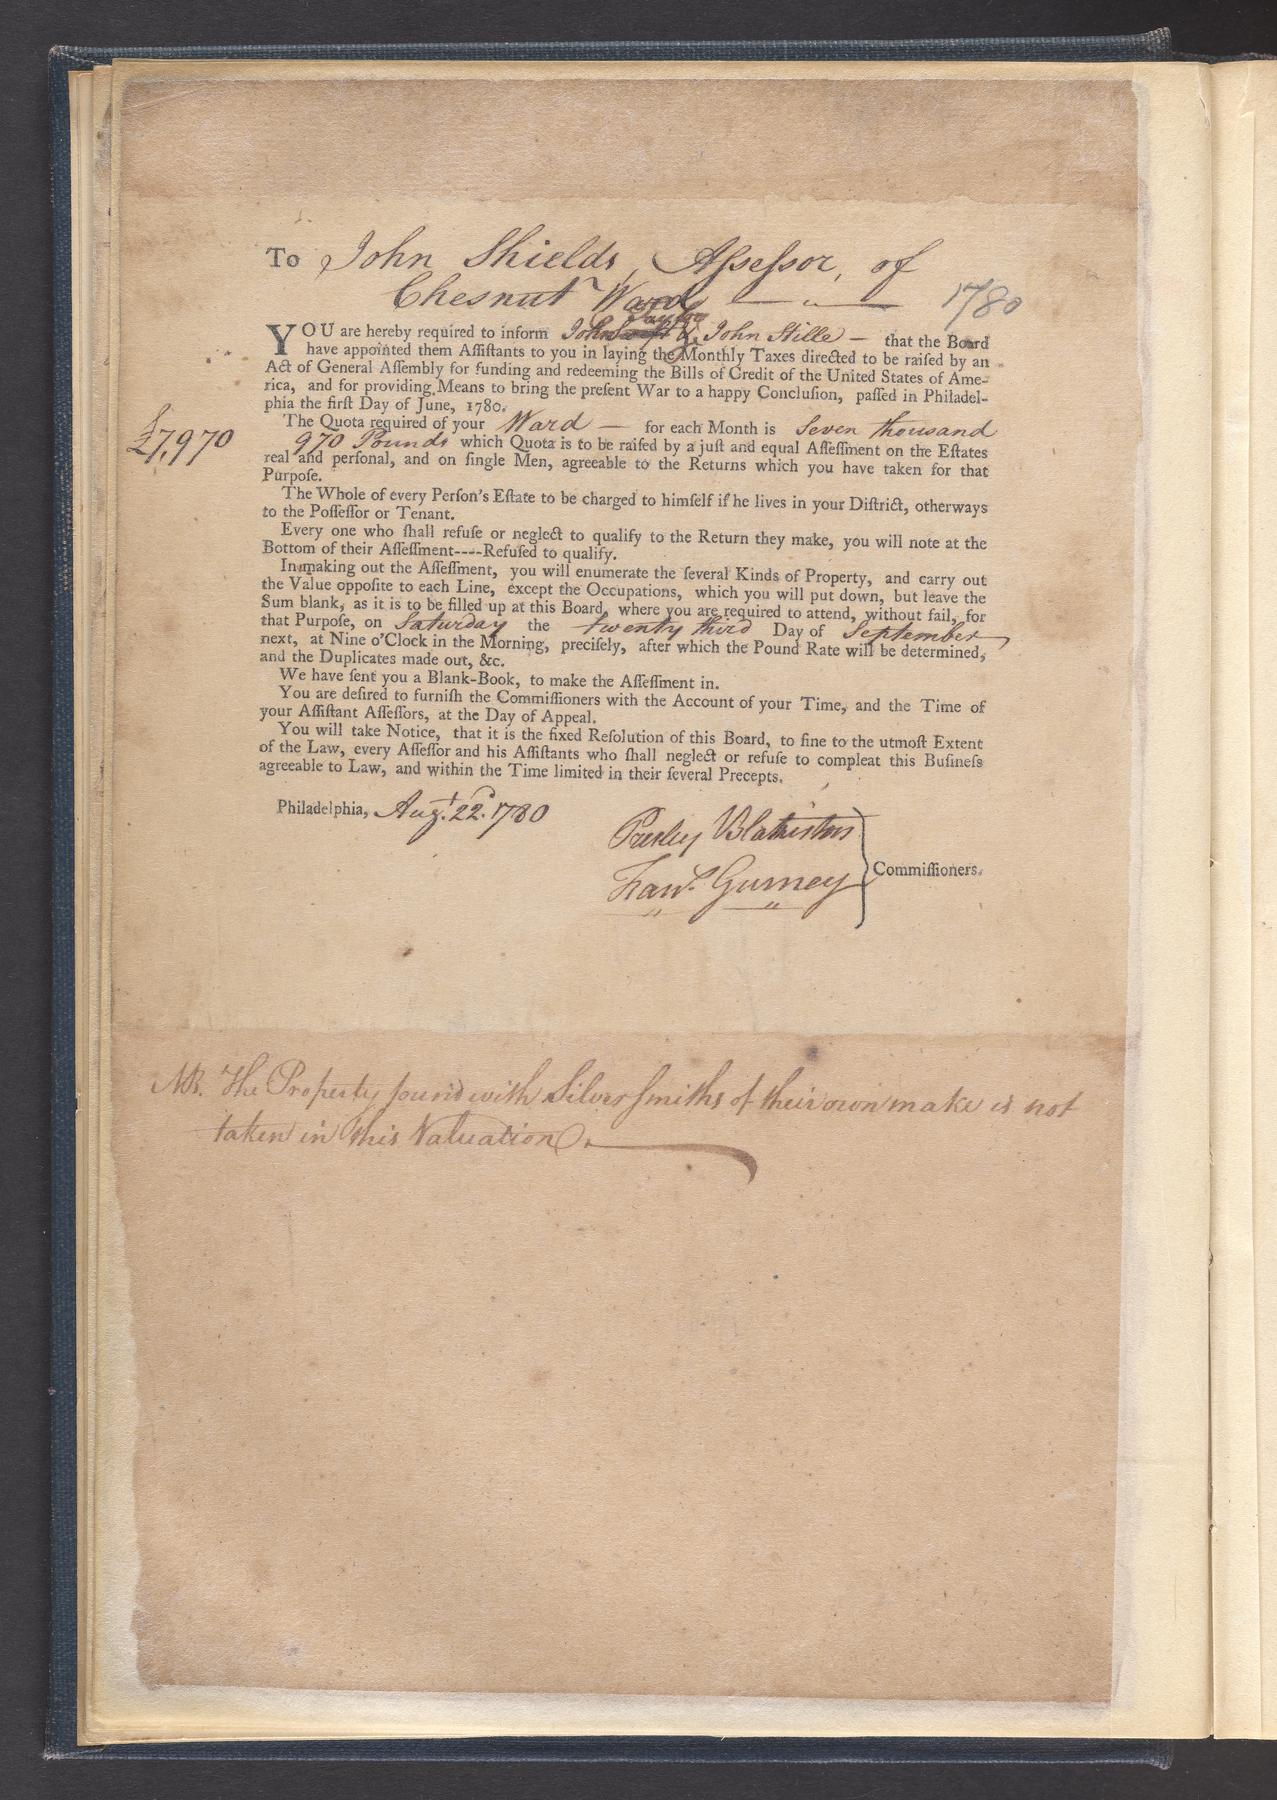 To John Shields, Aſseſsor, of
Chesnut Ward
1780
Taylor
YOU are hereby required to inform John Swift & John Stille — that the Board
have appointed them Aſſiſtants to you in laying the Monthly Taxes directed to be raiſed by an
Act of General Aſſembly for funding and redeeming the Bills of Credit of the United States of Ame-
rica, and for providing Means to bring the preſent War to a happy Concluſion, paſſed in Philadel-
phia the firſt Day of June, 1780.
The Quota required of your Ward — for each Month is Seven thousand
£7,970
970 Pounds which Quota is to be raiſed by a juſt and equal Aſſeſſment on the Eſtates
real and perſonal, and on ſingle Men, agreeable to the Returns which you have taken for that
Purpoſe.
The Whole of every Perſon's Eſtate to be charged to himſelf if he lives in your Diſtrict, otherways
to the Poſſeſſor or Tenant.
Every one who ſhall refuſe or neglect to qualify to the Return they make, you will note at the
Bottom of their Aſſeſſment----Refuſed to qualify.
In making out the Aſſeſſment, you will enumerate the ſeveral Kinds of Property, and carry out
the Value oppoſite to each Line, except the Occupations, which you will put down, but leave the
Sum blank, as it is to be filled up at this Board, where you are required to attend, without fail, for
that Purpoſe, on Saturday the twenty third Day of September
next, at Nine o'Clock in the Morning, preciſely, after which the Pound Rate will be determined,
and the Duplicates made out, &c.
We have ſent you a Blank-Book, to make the Aſſeſſment in.
You are deſired to furniſh the Commiſſioners with the Account of your Time, and the Time of
your Aſſiſtant Aſſeſſors, at the Day of Appeal.
You will take Notice, that it is the fixed Reſolution of this Board, to fine to the utmoſt Extent
of the Law, every Aſſeſſor and his Aſſiſtants who ſhall neglect or refuſe to compleat this Buſineſs
agreeable to Law, and within the Time limited in their ſeveral Precepts.
Philadelphia, Augt. 22d. 1780
Presley Blakiston
Frans. Gurney
Commiſſioners.
NB. The Property found with Silver ſmiths of their own make is not
taken in this Valuation.